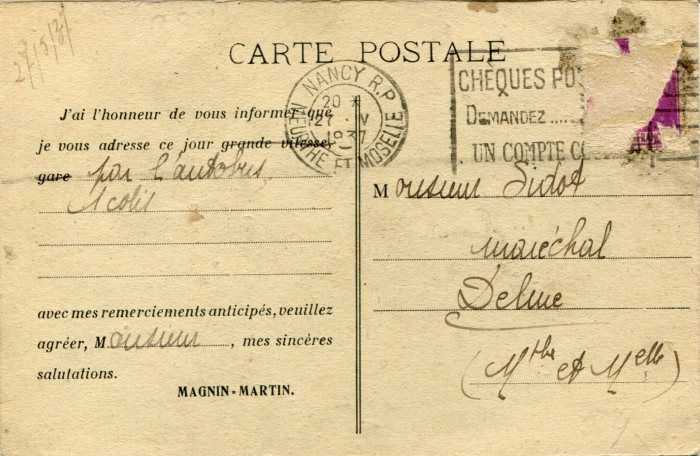 27/5/37
CARTE POSTALE
NANCY R.P.
20 *
27 · V
1937
MEURTHE ET MOSELLE
CHÈQUES PO
DEMANDEZ .....
UN COMPTE C
J'ai l'honneur de vous informer que
je vous adresse ce jour grande vitesse,
gare par l'autobus
1 colis
avec mes remerciements anticipés, veuillez
agréer, Monsieur, mes sincères
salutations.
MAGNIN-MARTIN.
Monsieur Sidot
maréchal
Delme
(Mthe et Melle)